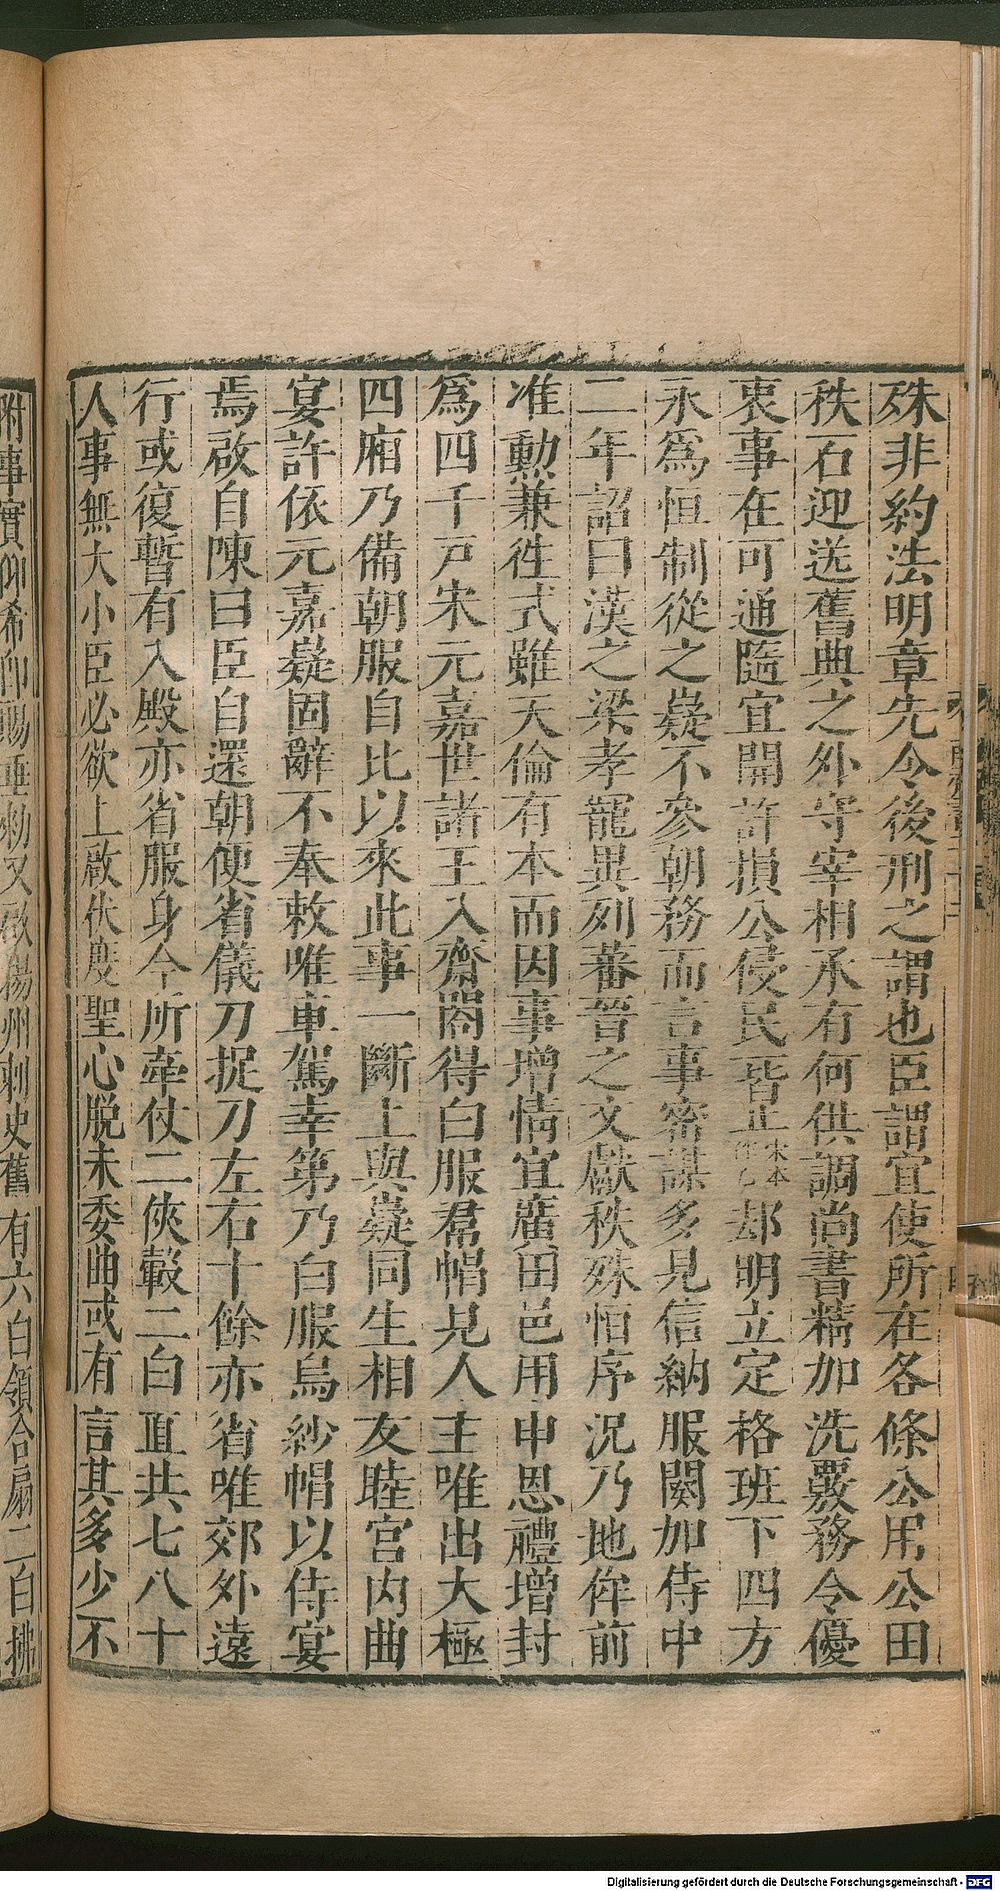 殊非約法明章先令後刑之謂也臣謂宜使所在各條公用公田
秩石迎送舊典之外守宰相承有何供調尚書精加洗覈務令優
衷事在可通隨宜開許損公侵民一皆止宋本作乙却明立定格班下四方
永爲恒制從之嶷不參朝務而言事密謀多見信納服闋加侍中
二年詔曰漢之梁孝寵異列蕃晉之文獻秩殊恒序況乃地侔前
准勳兼徃式雖天倫有本而因事增情宜廣田邑用申恩禮增封
爲四千戸宋元嘉世諸王入齋閤得白服帬帽見人主唯出大極
四廂乃備朝服自比以來此事一斷上與嶷同生相友睦宮內曲
宴許依元嘉嶷固辭不奉敕唯車駕幸第乃白服烏紗帽以侍宴
焉啟自陳曰臣自還朝便省儀刀捉刀左右十餘亦省唯郊外遠
行或復暫有入殿亦省服身今所牽仗二俠轂二白直共七八十
人事無大小臣必欲上啟伏度聖心脫未委曲或有言其多少不
附事實仰希即賜垂勑又啟揚州刺史舊有六白領合扇二白拂
Digitalisierung gefördert durch die Deutsche Forschungsgemeinschaft - DFG